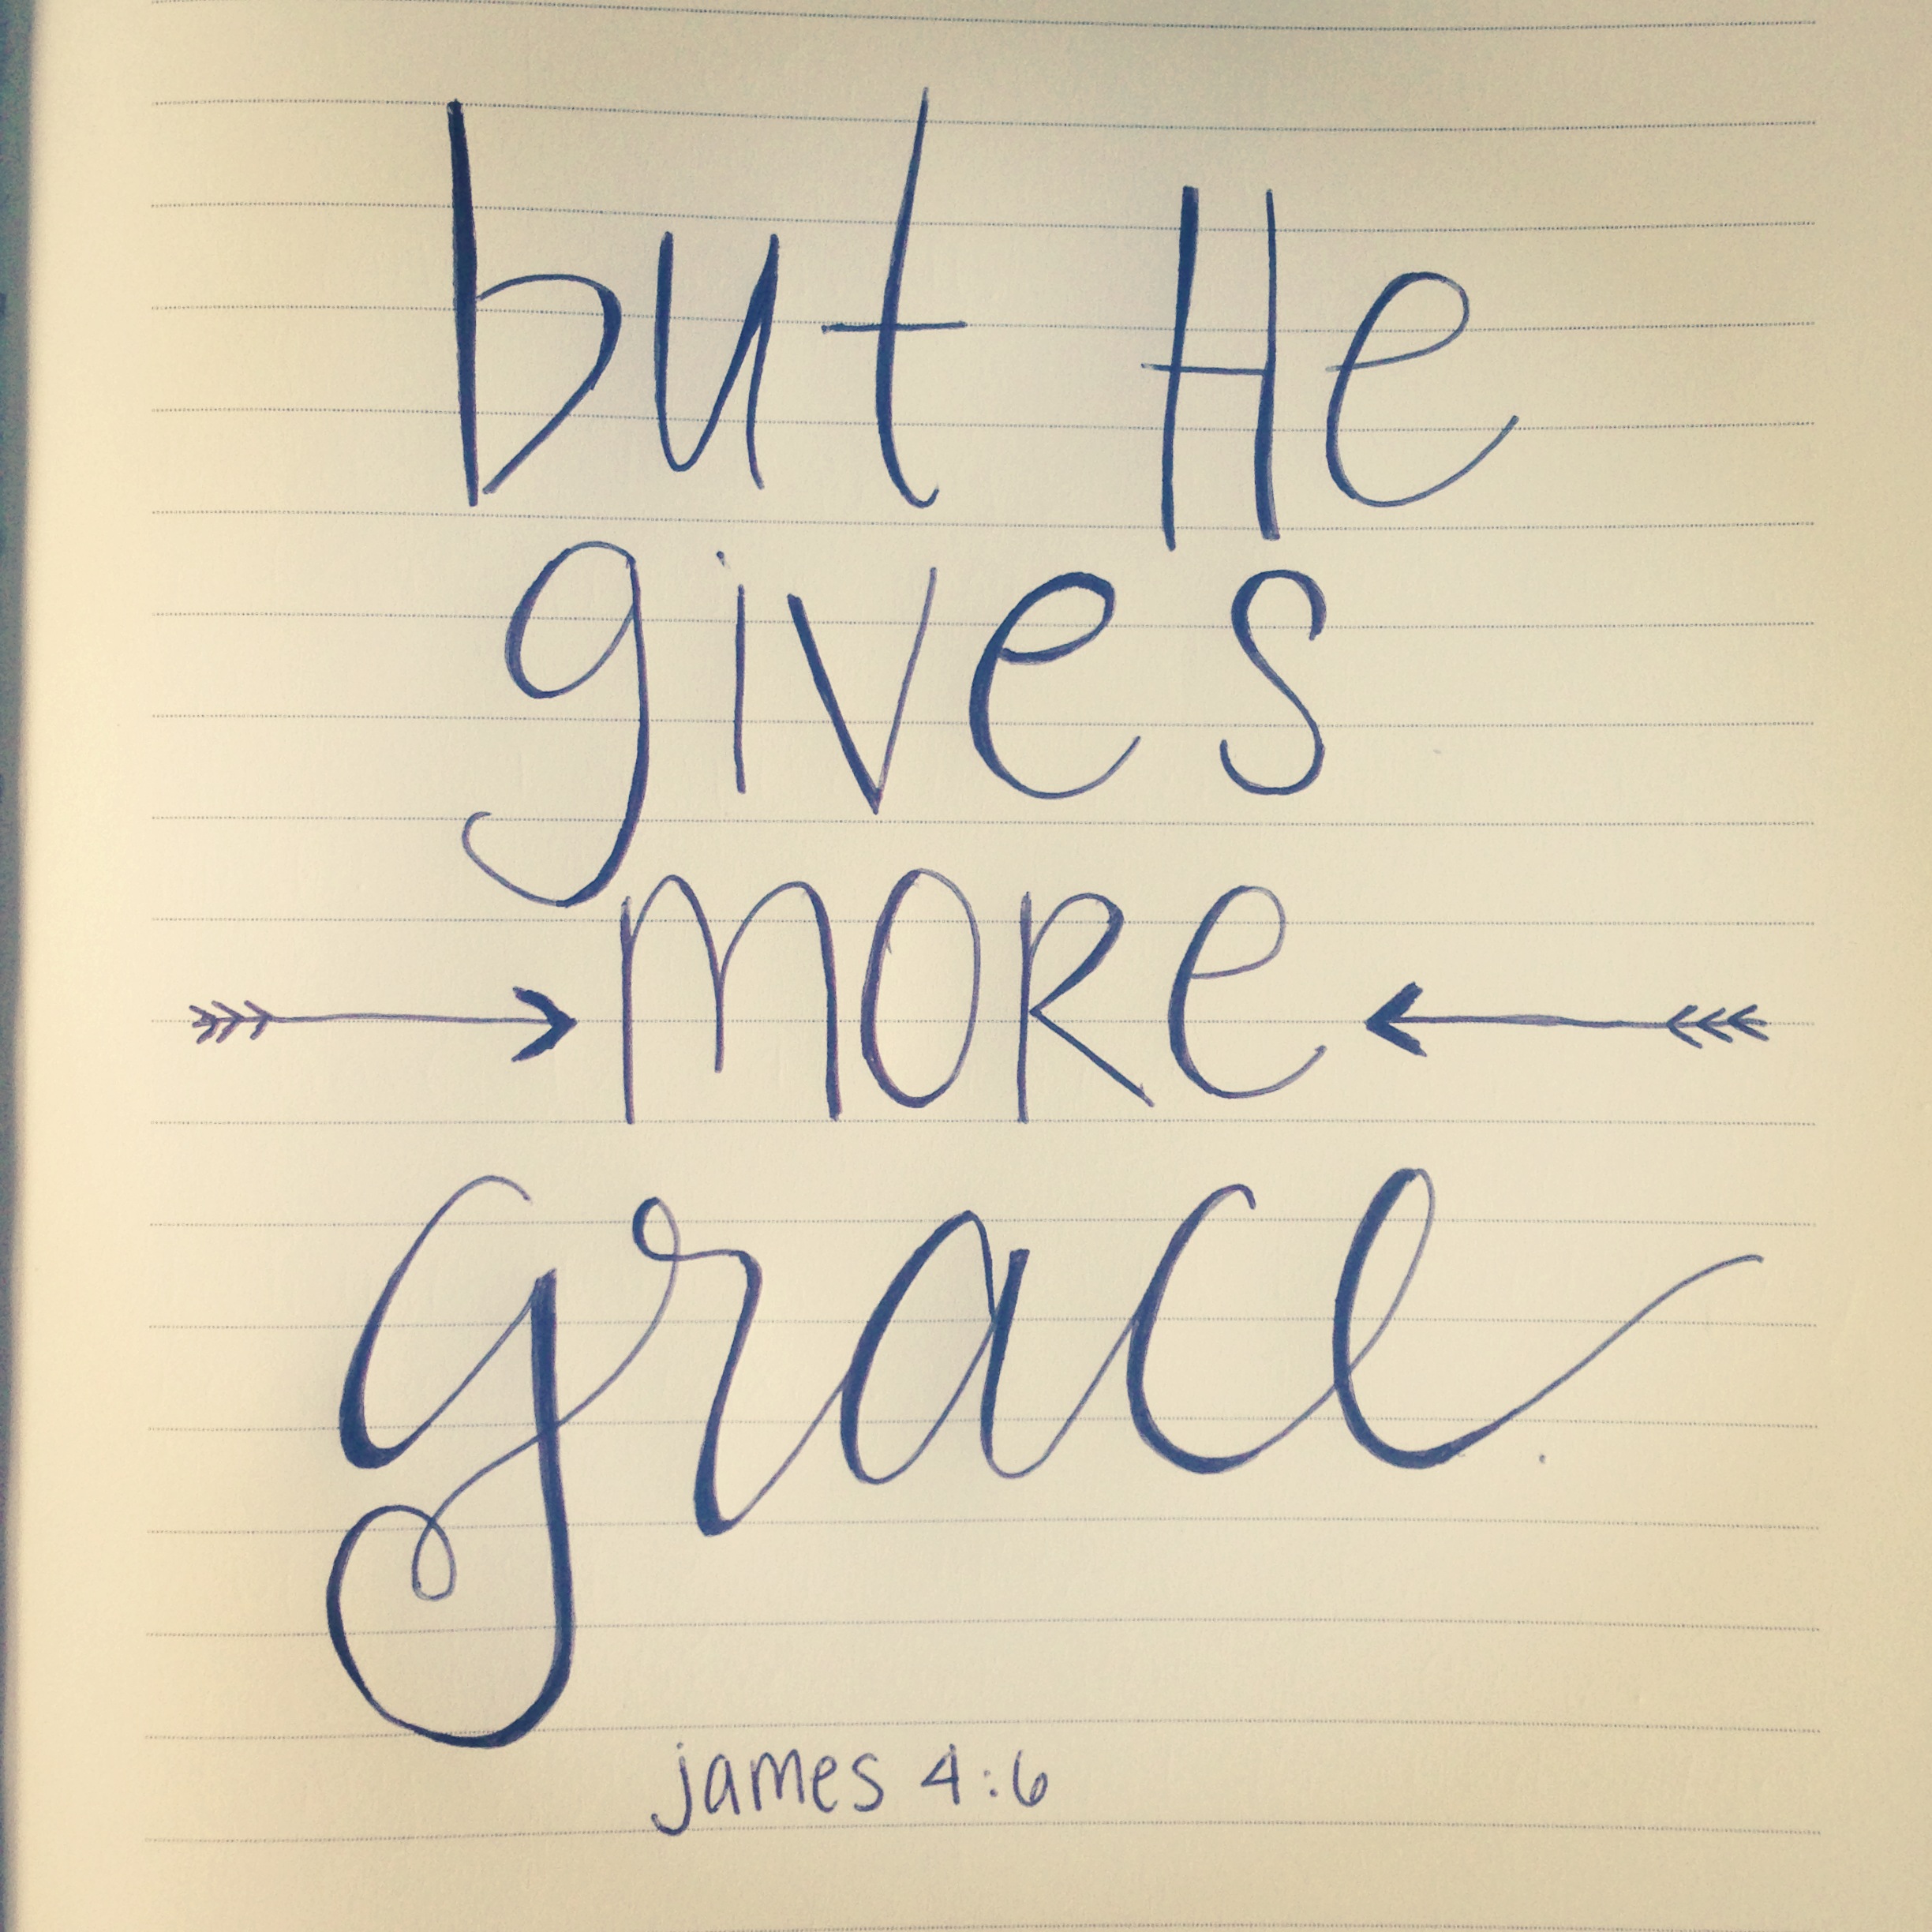 but He
gives
more
grace.
james 4:6